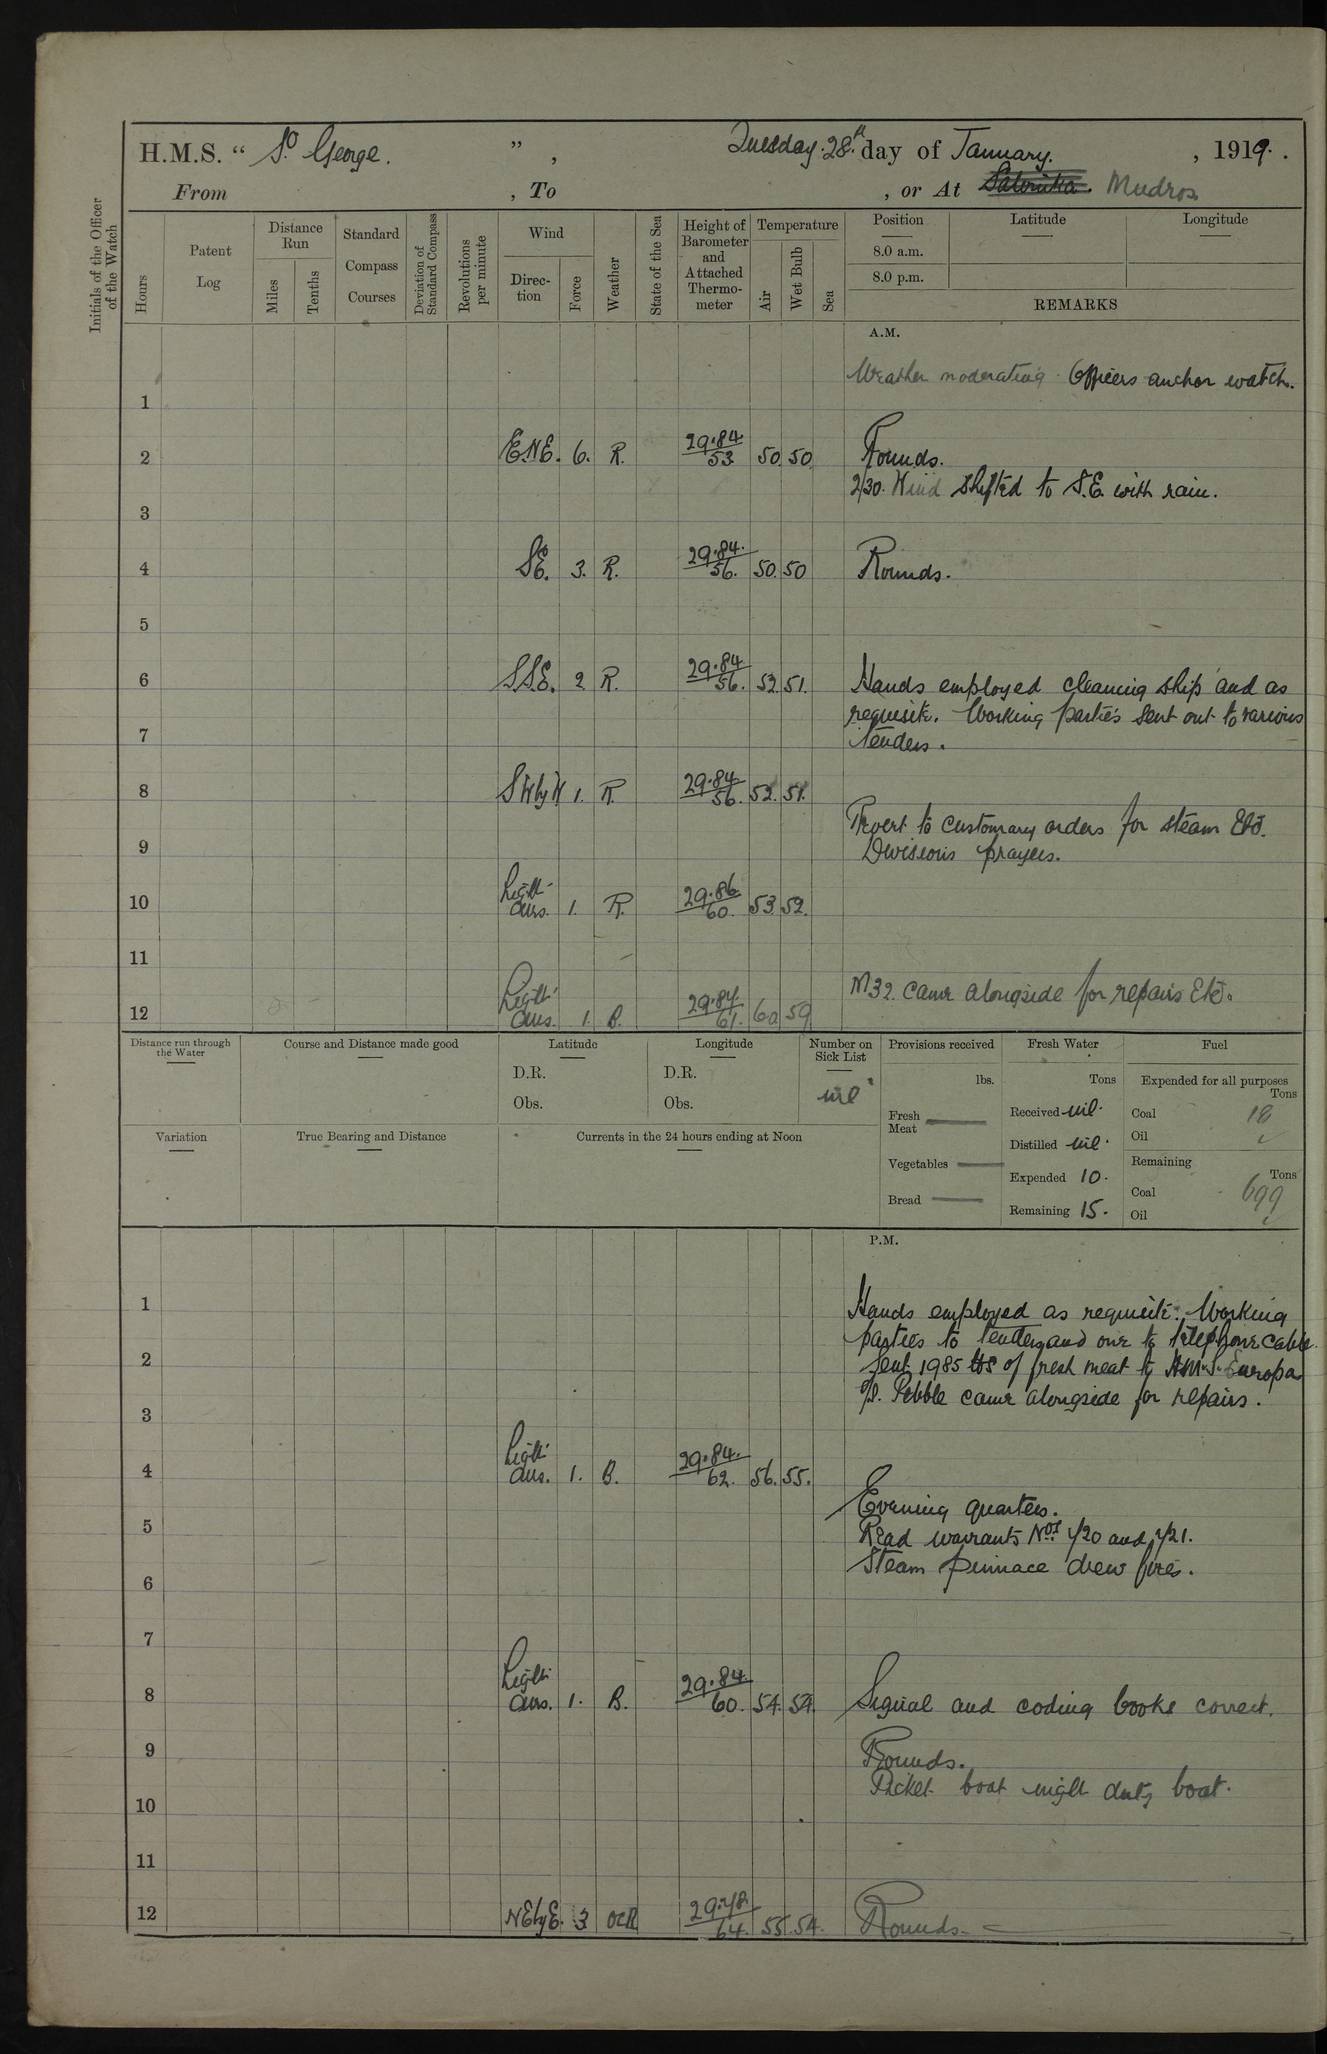 H.M.S. “ St. George. ” , Tuesday. 28th. day of January. , 1919. .
From , To , or At Salonika. Mudros.
Initials of the Officer of the Watch
Hours
Patent Log
Distance Run
Miles
Tenths
Standard Compass Courses
Deviation of Standard Compass
Revolutions per minute
Wind
Direc-tion
Force
Weather
State of the Sea
Height of Barometer and Attached Thermo-meter
Temperature
Air
Wet Bulb
Sea
Position
8.0 a.m.
8.0 p.m.
Latitude
Longitude
REMARKS
A.M.
Weather moderating Officers anchor watch.
1
2 E.N.E. 6. R. 29.84 53 50 50 Rounds.
2/30. Wind shifted to S.E. with rain.
3
4 SE. 3. R. 29.84. 56. 50. 50 Rounds.
5
6 S.S.E. 2 R. 29.84 56. 52 51. Hands employed cleaning ship and as
requisite. Working parties sent out to various
7 tenders.
8 SWbyW 1. R. 29.84. 56. 52. 51.
Revert to customary orders for steam Etc.
9 Divisions prayers.
10 Light airs. 1. R. 29.86 60. 53 52.
11
M32. came alongside for repairs Etc.
12 Light airs. 1. B. 29.84 61. 60 59
Distance run through the Water
Course and Distance made good
Latitude
D.R.
Obs.
Longitude
D.R.
Obs.
Number on Sick List
nil
Provisions received
lbs.
Fresh Meat
Vegetables
Bread
Fresh Water
Tons
Received nil.
Distilled nil.
Expended 10.
Remaining 15.
Fuel
Expended for all purposes
Tons
Coal 18
Oil
Remaining
Tons
Coal 699
Oil
Variation
True Bearing and Distance
Currents in the 24 hours ending at Noon
P.M.
1 Hands employed as requisite. Working
parties to tenders and one to telephone cable.
2 Sent 1985 lbs of fresh meat to H.M.S. Europa
Pebble came alongside for repairs.
3
4 Light airs. 1. B. 29.84. 62. 56. 55.
Evening quarters.
5 Read warrants Nos. 420 and 421.
Steam pinnace drew fires.
6
7
8 Light airs. 1. B. 29.84. 60. 54. 54. Signal and coding books correct.
9 Rounds.
Picket boat night duty boat.
10
11
12 NEbyE. 3 OCR 64. 55. 54. Rounds.